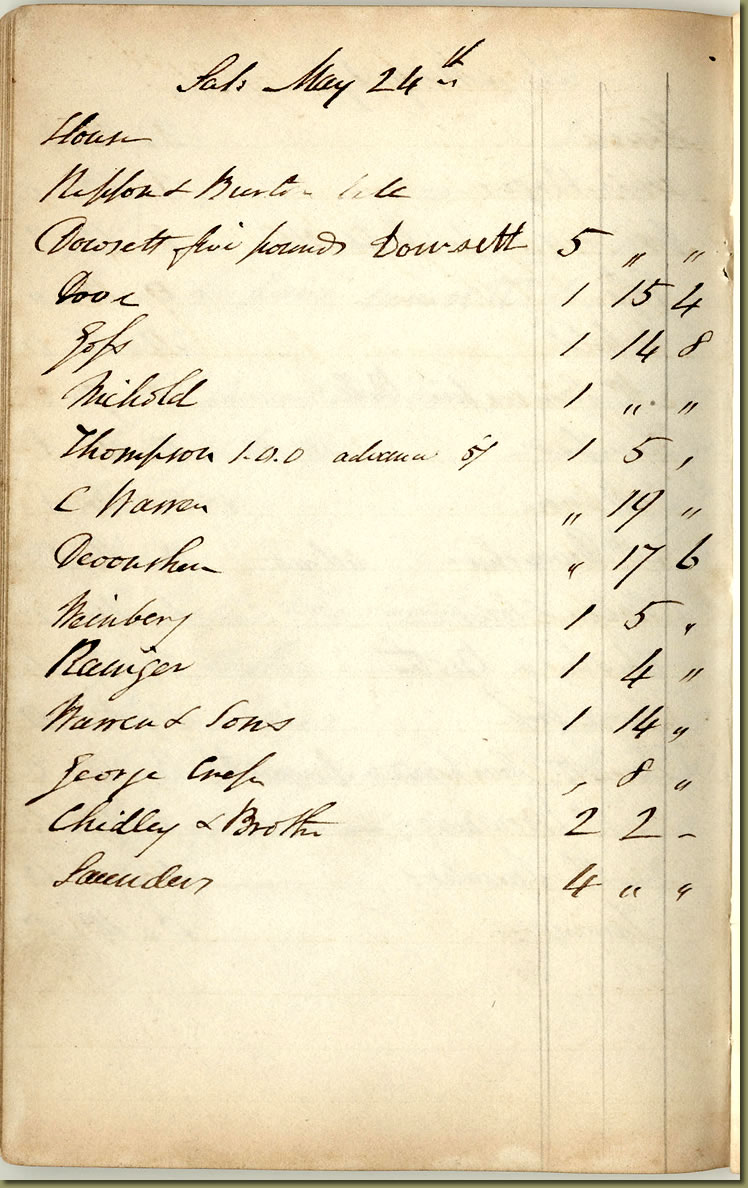 Sat: May 24th
House
& Burton
Dowsett five pounds Dowsett 5 " "
Dove 1 15 4
Goss 1 14 8
Nichold 1 " "
Thompson 1.0.0 advance 5/ 1 5 "
C Warren " 19 "
Devonshire " 17 6
Weinberg 1 5 "
Ranger 1 4 "
Warren & Sons 1 14 "
George Cress " 8 "
Chidley & Brother 2 2 -
Saunders 4 " "